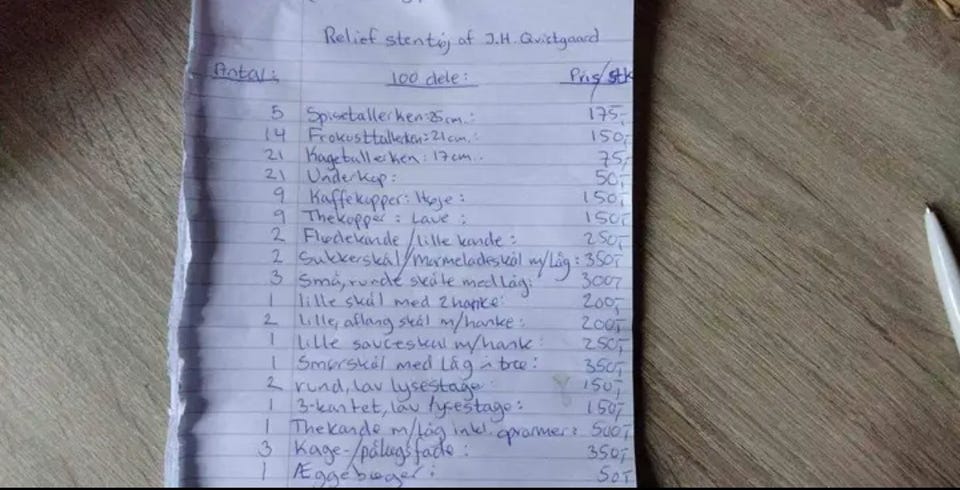 Relief stentøj af J.H. Quistgaard
Antal: 100 dele: Pris/stk
5 Spisetallerken: 25 cm.: 175,-
14 Frokosttallerken: 21 cm.: 150,-
21 Kagetallerken: 17 cm.. 75,-
21 Underkop: 50,-
9 Kaffekopper: Høje: 150,-
9 Thekopper: Lave: 150,-
2 Flødekande/lille kande: 250,-
2 Sukkerskål/Marmeladeskål m/låg: 350,-
3 Små, runde skåle med låg: 300,-
1 lille skål med 2 hanke: 200,-
2 Lille, aflang skål m/hanke: 200,-
1 Lille sauceskål m/hank: 250,-
1 Smørskål med Låg i træ: 350,-
2 rund, lav lysestage: 150,-
1 3-kantet, lav lysestage: 150,-
1 Thekande m/låg inkl. opvarmer: 500,-
3 Kage-/pålægsfade: 350,-
1 Æggebæger: 50,-